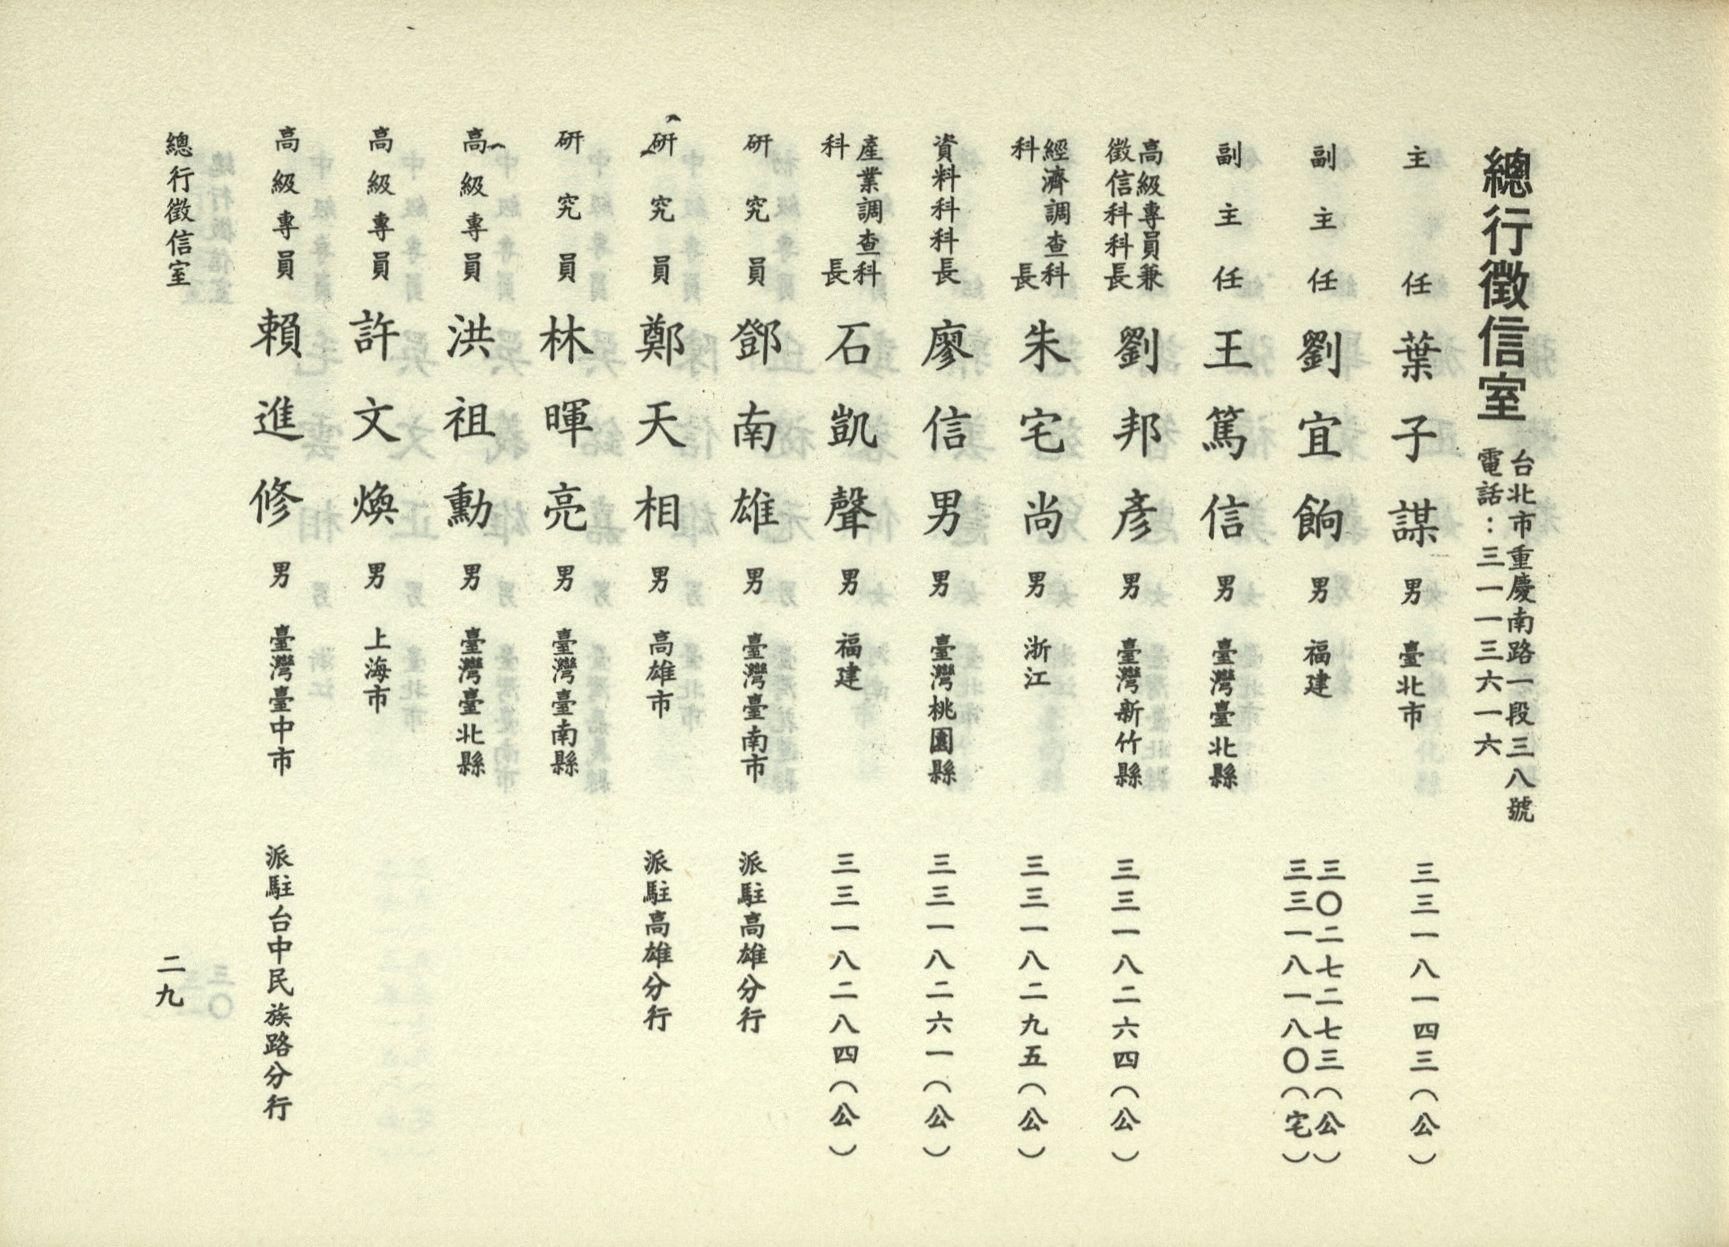 總行徵信室
台北市重慶南路一段三八號
電話：三一一三六一六
主任 葉子謀 男 臺北市 三三一八一四三（公）
副主任 劉宜餉 男 福建 三〇二七二七三（公）
三三一八一八〇（宅）
副主任 王篤信 男 臺灣臺北縣
高級專員兼
徵信科科長 劉邦彥 男 臺灣新竹縣 三三一八二六四（公）
經濟調查科
科長 朱宅尚 男 浙江 三三一八二九五（公）
資料科科長 廖信男 男 臺灣桃園縣 三三一八二六一（公）
產業調查科
科長 石凱聲 男 福建 三三一八二八四（公）
研究員 鄧南雄 男 臺灣臺南市 派駐高雄分行
研究員 鄭天相 男 高雄市 派駐高雄分行
研究員 林暉亮 男 臺灣臺南縣
高級專員 洪祖勳 男 臺灣臺北縣
高級專員 許文煥 男 上海市
高級專員 賴進修 男 臺灣臺中市 派駐台中民族路分行
總行徵信室
二九